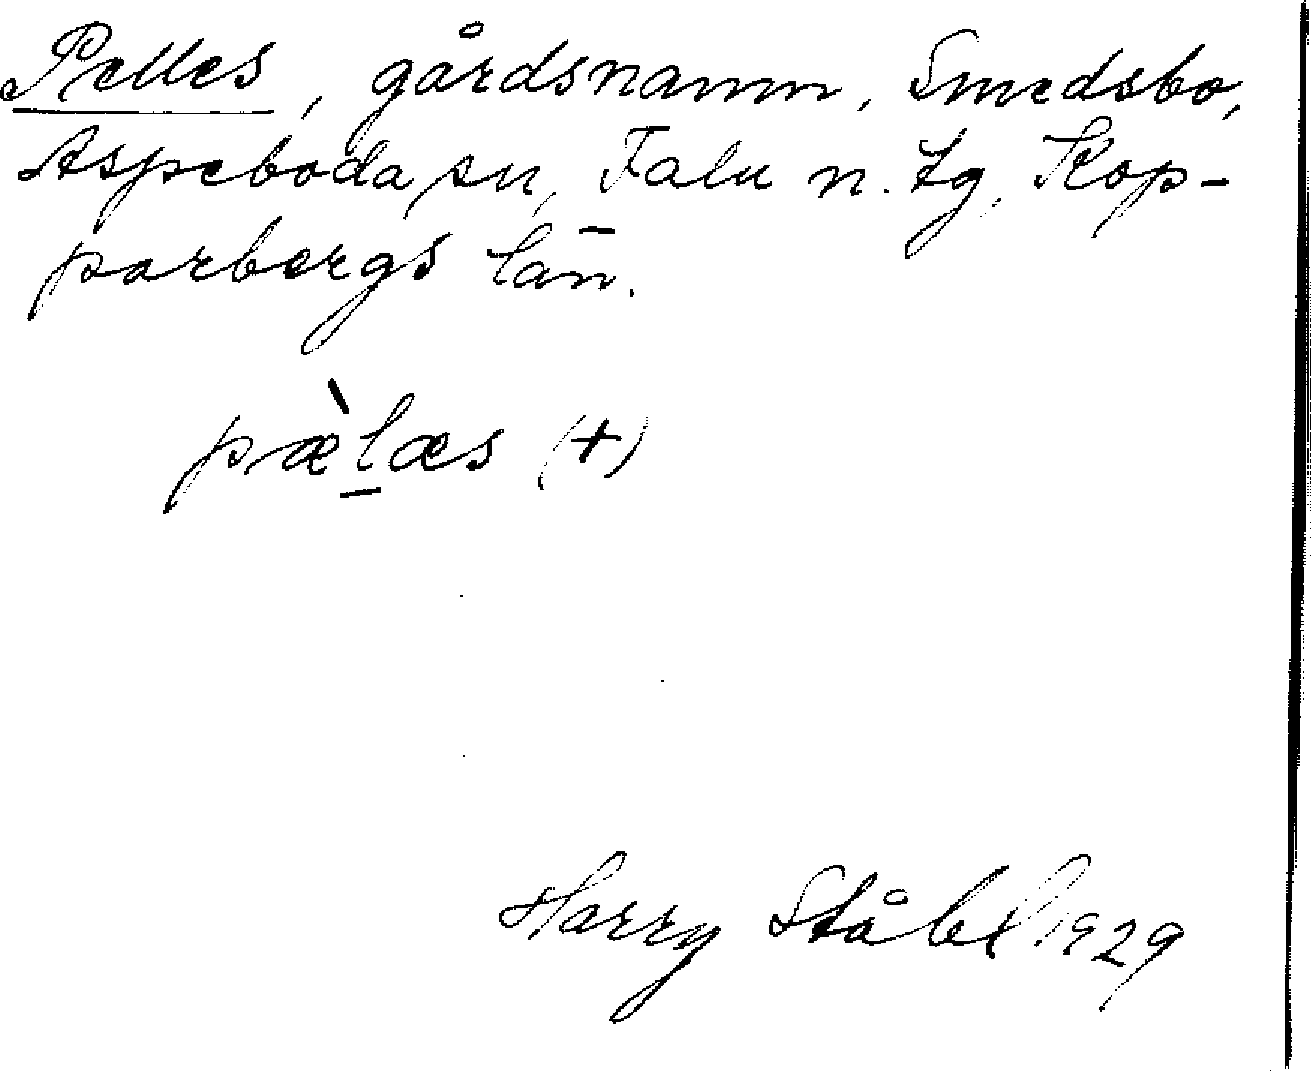 Pelles, gårdsnamn, Smedsbo,
Aspeboda sn, Falu n. tg, Kop-
parbergs län.
pæ̀l̠æs (+)
Harry Ståhl 1929